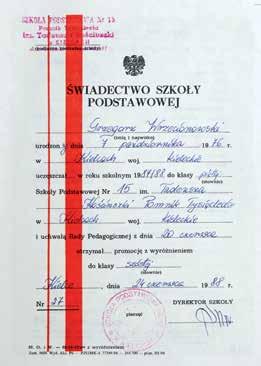 SZKOŁA PODSTAWOWA Nr 15
Pomnik Tysiąclecia
im. Tadeusza Kościuszki
ŚWIADECTWO SZKOŁY
PODSTAWOWEJ
Grzegorz
(imię i nazwisko)
urodzony dnia 7 października 1976 r.
w Kielcach woj. Kieleckie
uczęszczał w roku szkolnym 1987/88 do klasy piątej
(słownie)
Szkoły Podstawowej Nr 15 im. Tadeusza
Kościuszki Pomnik Tysiąclecia
w Kielcach woj. kieleckie
i uchwałą Rady Pedagogicznej z dnia 20 czerwca
otrzymał promocję z wyróżnieniem
do klasy szóstej
(słownie)
Kielce, 24 czerwca 1988 r.
Nr 27
DYREKTOR SZKOŁY
pieczęć